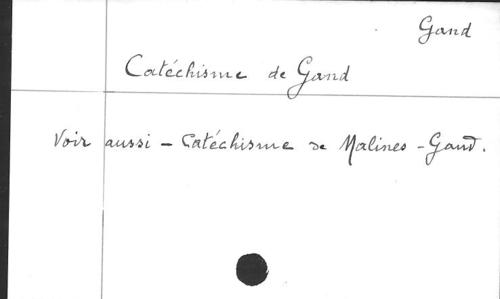 Gand
Catéchisme de Gand
Voir aussi - Catéchisme de Malines - Gand.